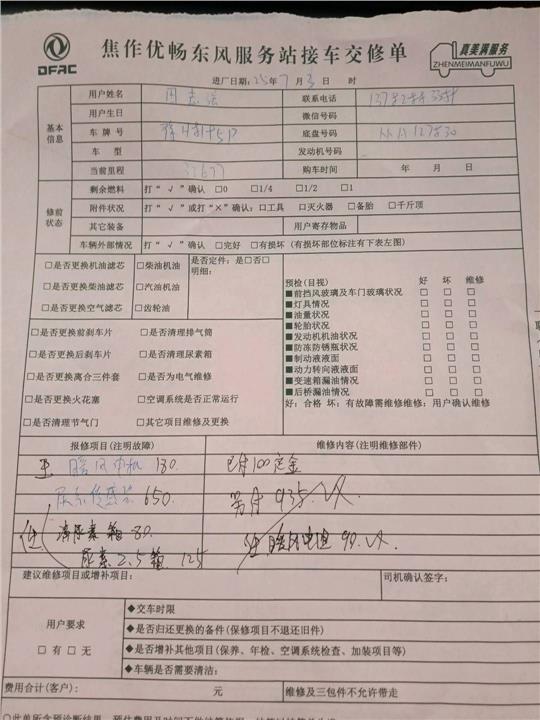 DFAC
焦作优畅东风服务站接车交修单
真美满服务
ZHENMEIMANFUWU
进厂日期:25年7月 日 时
基本信息
用户姓名 联系电话
用户生日 微信号码
车牌号 底盘号码
车型 发动机号码
当前里程 购车时间 年 月 日
修前状态
剩余燃料 打“√”确认 □0 □1/4 □1/2 □1
附件状况 打“√”或打“×”确认:□工具 □灭火器 □备胎 □千斤顶
其它装备 用户寄存物品
车辆外部情况 打“√”确认 □完好 □有损坏(有损坏部位标注有下表左图)
□是否更换机油滤芯 □柴油机油 是否定件:是□否□
明细:
□是否更换柴油滤芯 □汽油机油
□是否更换空气滤芯 □齿轮油
预检(目视) 好 坏 维修
■前挡风玻璃及车门玻璃状况 □ □ □
■灯具情况 □ □ □
■油量状况 □ □ □
■轮胎状况 □ □ □
■发动机机油状况 □ □ □
■防冻防锈瓶状况 □ □ □
■制动液液面 □ □ □
■动力转向液液面 □ □ □
■变速箱漏油情况 □ □ □
■后桥漏油情况 □ □ □
好:合格 坏:有故障需维修维修:用户确认维修
□是否更换前刹车片 □是否清理排气筒
□是否更换后刹车片 □是否清理尿素箱
□是否更换离合三件套 □是否为电气维修
□是否更换火花塞 □空调系统是否正常运行
□是否清理节气门 □其它项目维修及更换
报修项目(注明故障) 维修内容(注明维修部件)
暖风电机 180. 已付100定金
650. 另付935.
清尿素箱 80. 暖风电阻 90.
尿素2.5箱 125
建议维修项目或增补项目: 司机确认签字:
用户要求
□有 □无
◆交车时限
◆是否归还更换的备件(保修项目不退还旧件)
◆是否增补其他项目(保养、年检、空调系统检查、加装项目等)
◆车辆是否需要清洁:
费用合计(客户): 元 维修及三包件不允许带走